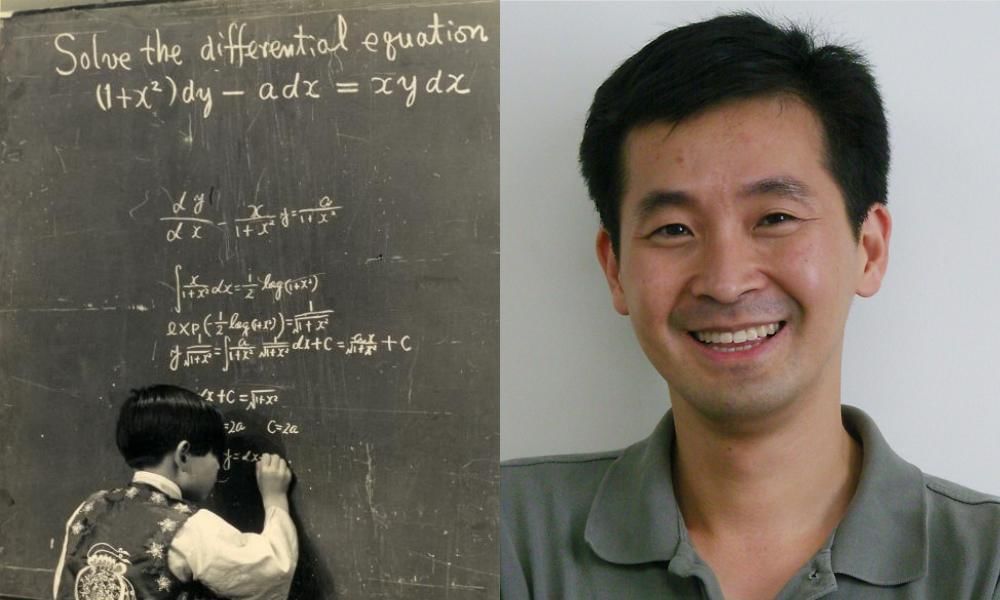 Solve the differential equation
(1+x²)dy − adx = xydx
dy/dx − x/(1+x²) y = a/(1+x²)
∫ x/(1+x²) dx = 1/2 log(1+x²)
exp(−1/2 log(1+x²)) = 1/√(1+x²)
y 1/√(1+x²) = ∫ a/(1+x²) 1/√(1+x²) dx + C = ax/√(1+x²) + C
x + C = √(1+x²)
=2a C=2a
y = ax